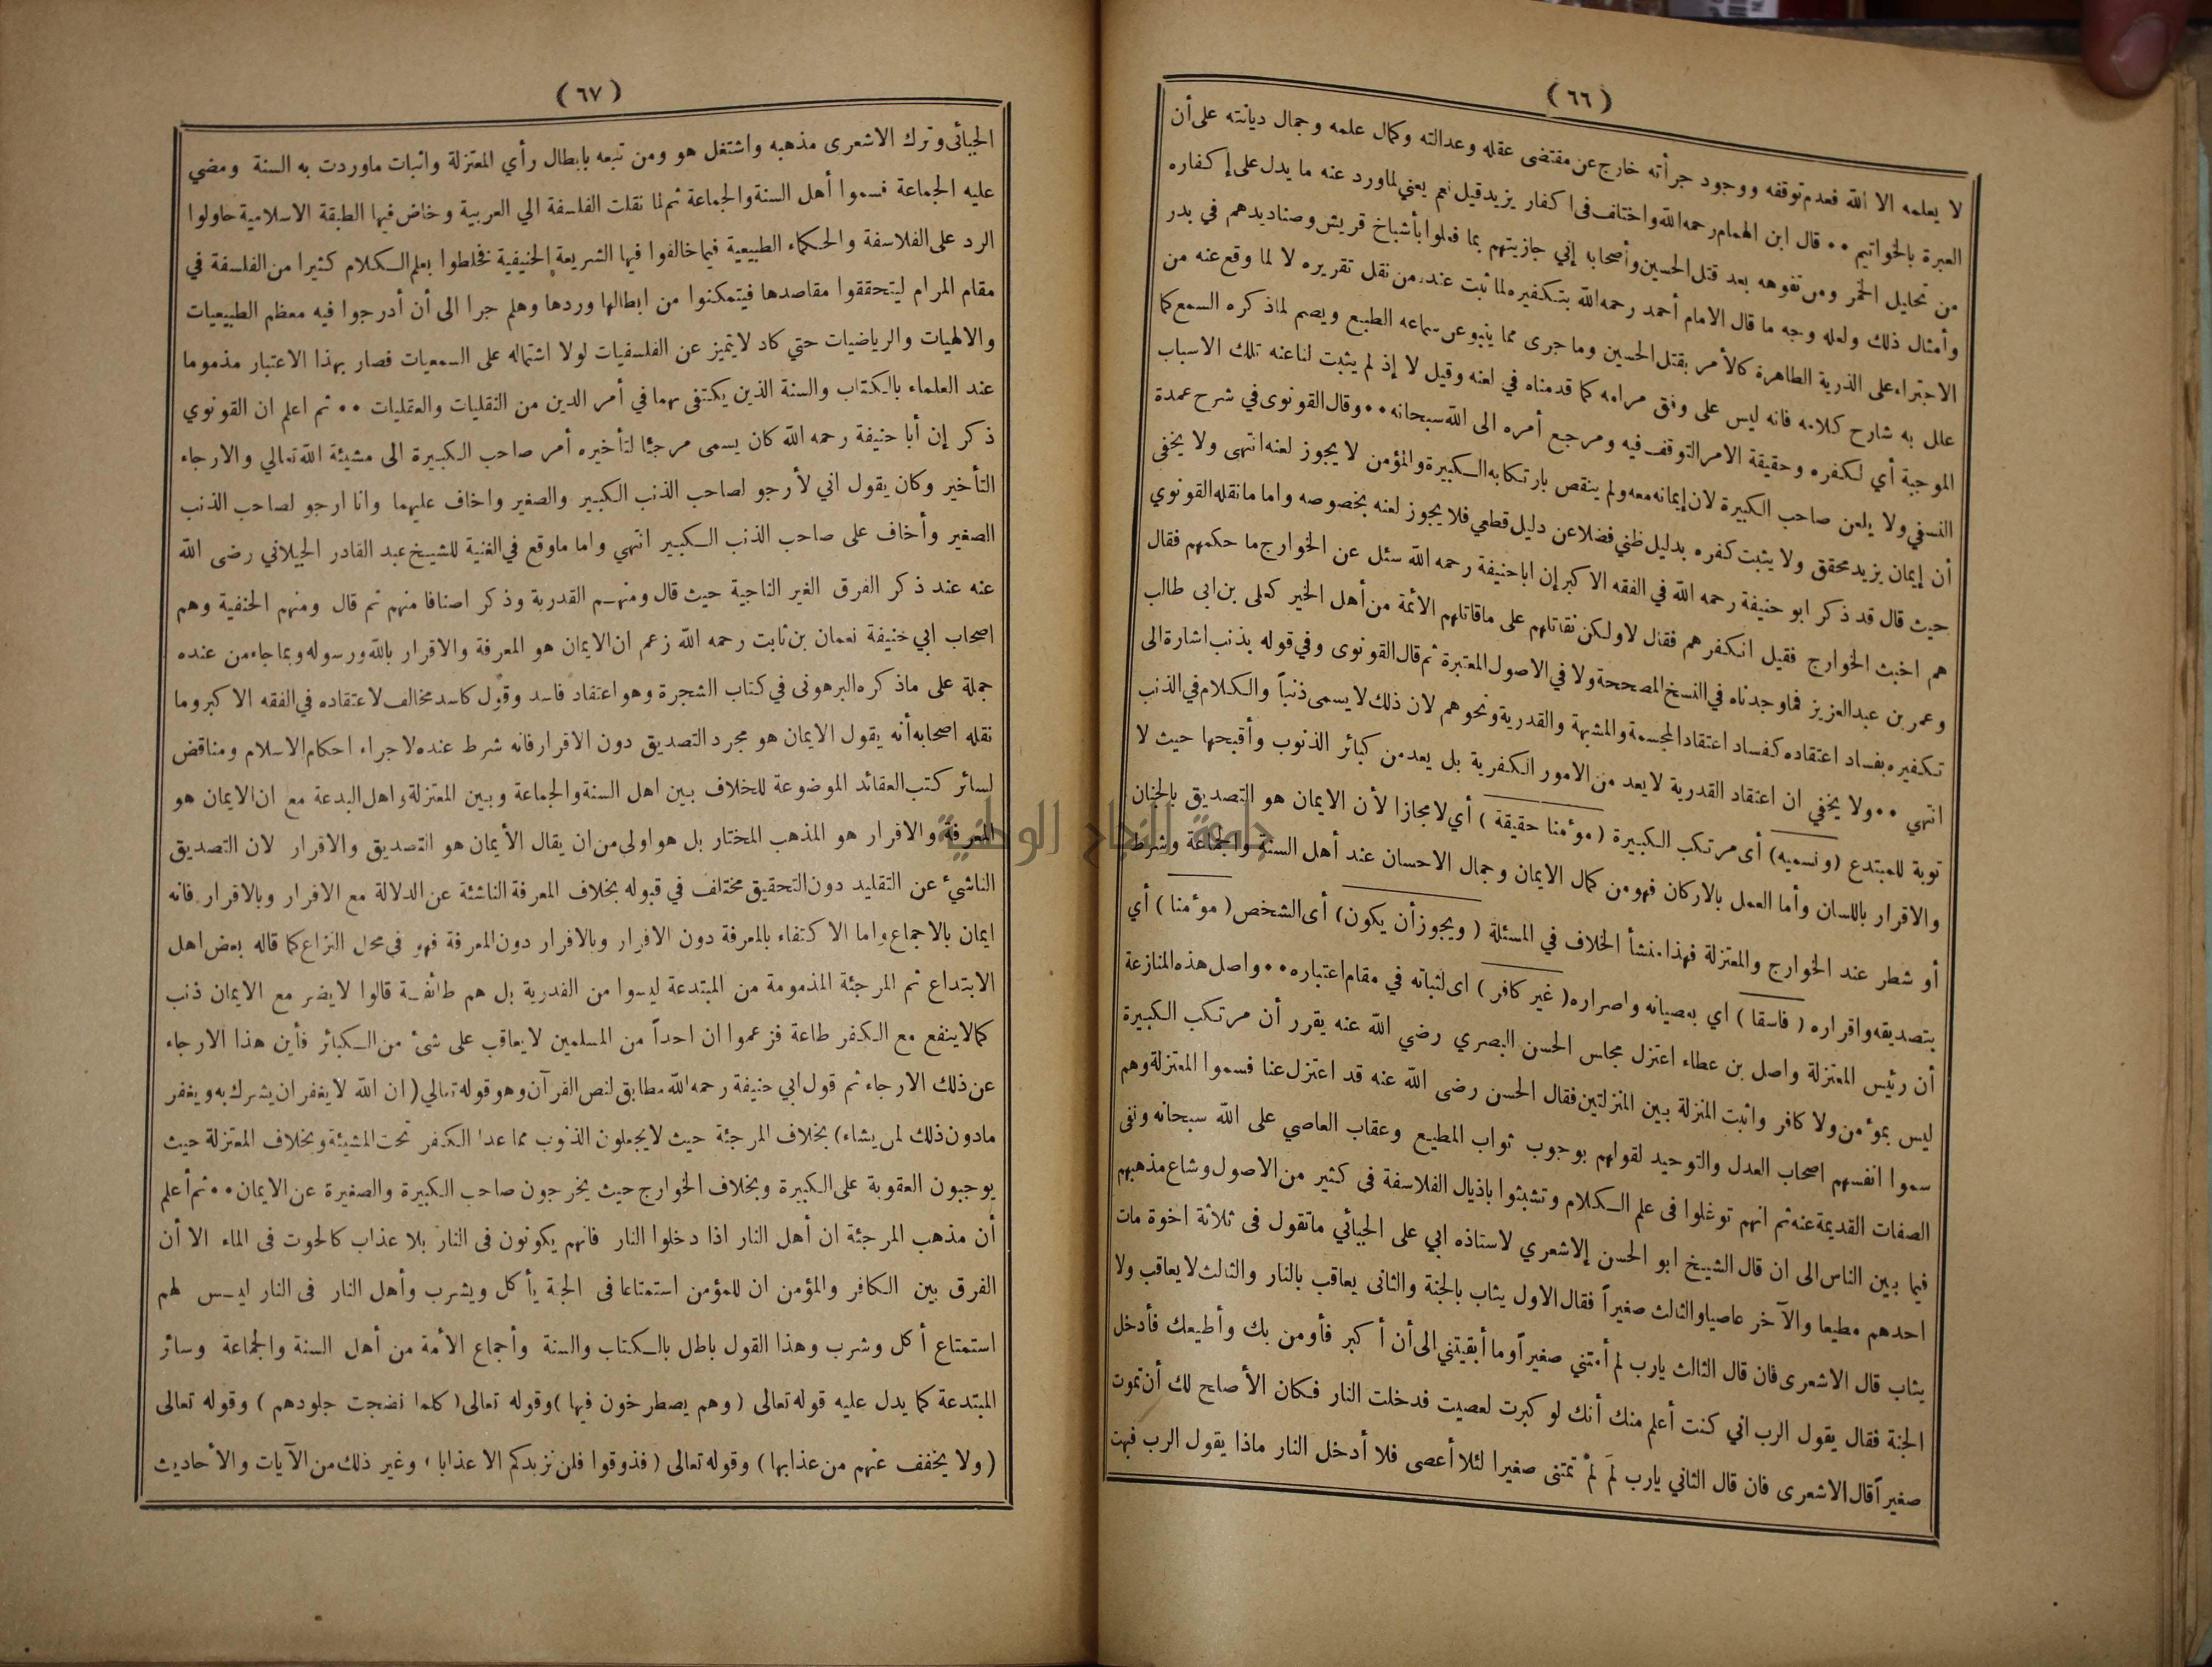 ( ٦٦ )
لا يعلمه الا الله فعدم توقفه ووجود جرأته خارج عن مقتضى عقله وعدالته وكمال علمه وجمال ديانته على أن
العبرة بالخواتيم •• قال ابن الهمام رحمه الله واختلف في اكفار يزيد قيل نعم يعني لما ورد عنه ما يدل على إكفاره
من تحليل الخمر ومن تفوهه بعد قتل الحسين وأصحابه إني جازيتهم بما فعلوا بأشياخ قريش وصناديدهم في بدر
وأمثال ذلك ولعله وجه ما قال الامام أحمد رحمه الله بتكفيره لما ثبت عنده من نقل تقريره لا لما وقع عنه من
الاجتراء على الذرية الطاهرة كالأمر بقتل الحسين وما جرى مما ينبو عن سماعه الطبع ويصم لماذكره السمع كما
علل به شارح كلامه فانه ليس على وفق مرامه كما قدمناه في لعنه وقيل لا إذ لم يثبت لنا عنه تلك الاسباب
الموجبة أي لكفره وحقيقة الامر التوقف فيه ومرجع أمره الى الله سبحانه •• وقال القونوى في شرح عمدة
النسفي ولا يلعن صاحب الكبيرة لان إيمانه معه ولم ينقص بارتكابه الكبيرة والمؤمن لا يجوز لعنه انتهى ولا يخفى
أن إيمان يزيد محقق ولا يثبت كفره بدليل ظني فضلا عن دليل قطعي فلا يجوز لعنه بخصوصه واما ما نقله القونوي
حيث قال قد ذكر ابو حنيفة رحمه الله في الفقه الاكبر إن اباحنيفة رحمه الله سئل عن الخوارج ما حكمهم فقال
هم اخبث الخوارج فقيل انكفرهم فقال لا ولكن نقاتلهم على ما قاتلهم الأئمة من أهل الخير كعلى بن ابى طالب
وعمر بن عبدالعزيز فما وجدناه في النسخ المصححة ولا في الاصول المعتبرة ثم قال القونوى وفي قوله بذنب اشارة الى
تكفيره بفساد اعتقاده كفساد اعتقاد المجسمة والمشبهة والقدرية ونحوهم لان ذلك لا يسمى ذنباً والكلام في الذنب
انتهي •• ولا يخفي ان اعتقاد القدرية لا يعد من الامور الكفرية بل يعد من كبائر الذنوب وأقبحها حيث لا
توبة للمبتدع (ونسميه) أى مرتكب الكبيرة ( موٴمنا حقيقة ) أي لا مجازا لأن الايمان هو التصديق بالجنان
والاقرار باللسان وأما العمل بالاركان فهو من كمال الايمان وجمال الاحسان عند أهل السنة والجماعة وشرط
أو شطر عند الخوارج والمعتزلة فهذا منشأ الخلاف في المسئلة ( ويجوز أن يكون) أى الشخص ( موٴمنا ) أي
بتصديقه واقراره ( فاسقا ) اي بعصيانه واصراره ( غير كافر ) اى لثباته في مقام اعتباره •• واصل هذه المنازعة
أن رئيس المعتزلة واصل بن عطاء اعتزل مجلس الحسن البصري رضي الله عنه يقرر أن مرتكب الكبيرة
ليس بموٴمن ولا كافر واثبت المنزلة بين المنزلتين فقال الحسن رضى الله عنه قد اعتزل عنا فسموا المعتزلة وهم
سموا انفسهم اصحاب العدل والتوحيد لقولهم بوجوب ثواب المطيع وعقاب العاصي على الله سبحانه ونفى
الصفات القديمة عنه ثم انهم توغلوا فى علم الكلام وتشبثوا باذيال الفلاسفة فى كثير من الاصول وشاع مذهبهم
فيما بين الناس الى ان قال الشيخ ابو الحسن الاشعري لاستاذه ابي على الجبائي ماتقول فى ثلاثة اخوة مات
احدهم مطيعا والآخر عاصيا والثالث صغيراً فقال الاول يثاب بالجنة والثانى يعاقب بالنار والثالث لا يعاقب ولا
يثاب قال الاشعرى فان قال الثالث يارب لم أمتني صغيراً وما أبقيتني الى أن أكبر فأومن بك وأطيعك فأدخل
الجنة فقال يقول الرب اني كنت أعلم منك أنك لو كبرت لعصيت فدخلت النار فكان الأصلح لك أن تموت
صغيراً قال الاشعرى فان قال الثاني يارب لِمَ لمْ تمتنى صغيرا لئلا أعصى فلا أدخل النار ماذا يقول الرب فبهت
( ٦٧ )
الجبائى وترك الاشعرى مذهبه واشتغل هو ومن تبعه بابطال رأي المعتزلة واثبات ماوردت به السنة ومضي
عليه الجماعة فسموا أهل السنة والجماعة ثم لما نقلت الفلسفة الي العربية وخاض فيها الطبقة الاسلامية حاولوا
الرد على الفلاسفة والحكماء الطبيعية فيما خالفوا فيها الشريعة الحنيفية فخلطوا بعلم الكلام كثيرا من الفلسفة في
مقام المرام ليتحققوا مقاصدها فيتمكنوا من ابطالها وردها وهلم جرا الى أن أدرجوا فيه معظم الطبيعيات
والالهيات والرياضيات حتي كاد لا يتميز عن الفلسفيات لولا اشتماله على السمعيات فصار بهذا الاعتبار مذموما
عند العلماء بالكتاب والسنة الذين يكتفى بهما في أمر الدين من النقليات والعقليات •• ثم اعلم ان القونوي
ذكر إن أبا حنيفة رحمه الله كان يسمى مرجئا لتأخيره أمر صاحب الكبيرة الى مشيئة الله تعالي والارجاء
التأخير وكان يقول اني لأرجو لصاحب الذنب الكبير والصغير واخاف عليهما وانا ارجو لصاحب الذنب
الصغير وأخاف على صاحب الذنب الكبير انتهي واما ماوقع في الغنية للشيخ عبد القادر الجيلاني رضى الله
عنه عند ذكر الفرق الغير الناجية حيث قال ومنهم القدرية وذكر اصنافا منهم ثم قال ومنهم الحنفية وهم
اصحاب ابي حنيفة نعمان بن ثابت رحمه الله زعم ان الايمان هو المعرفة والاقرار بالله ورسوله وبما جاء من عنده
جملة على ماذكره البرهوتى في كتاب الشجرة وهو اعتقاد فاسد وقول كاسد مخالف لاعتقاده في الفقه الاكبر وما
نقله اصحابه أنه يقول الايمان هو مجرد التصديق دون الاقرار فانه شرط عنده لاجراء احكام الاسلام ومناقض
لسائر كتب العقائد الموضوعة للخلاف بين اهل السنة والجماعة وبين المعتزلة واهل البدعة مع ان الايمان هو
المعرفة والاقرار هو المذهب المختار بل هو اولى من ان يقال الأيمان هو التصديق والاقرار لان التصديق
الناشئ عن التقليد دون التحقيق مختلف في قبوله بخلاف المعرفة الناشئة عن الدلالة مع الاقرار وبالاقرار فانه
ايمان بالاجماع واما الاكتفاء بالمعرفة دون الاقرار وبالاقرار دون المعرفة فهو في محل النزاع كما قاله بعض اهل
الابتداع ثم المرجئة المذمومة من المبتدعة ليسوا من القدرية بل هم طائفة قالوا لا يضر مع الايمان ذنب
كما لا ينفع مع الكفر طاعة فزعموا ان احداً من المسلمين لا يعاقب على شئ من الكبائر فأين هذا الارجاء
عن ذلك الارجاء ثم قول ابي حنيفة رحمه الله مطابق لنص القرآن وهو قوله تعالي ( ان الله لا يغفر ان يشرك به ويغفر
مادون ذلك لمن يشاء) بخلاف المرجئة حيث لا يجعلون الذنوب مما عدا الكفر تحت المشيئة وبخلاف المعتزلة حيث
يوجبون العقوبة على الكبيرة وبخلاف الخوارج حيث يخرجون صاحب الكبيرة والصغيرة عن الايمان •• ثم أعلم
أن مذهب المرجئة ان أهل النار اذا دخلوا النار فانهم يكونون فى النار بلا عذاب كالحوت فى الماء الا أن
الفرق بين الكافر والمؤمن ان للمؤمن استمتاعا فى الجنة يأكل ويشرب وأهل النار فى النار ليس لهم
استمتاع أكل وشرب وهذا القول باطل بالكتاب والسنة وأجماع الأمة من أهل السنة والجماعة وسائر
المبتدعة كما يدل عليه قوله تعالى ( وهم يصطرخون فيها ) وقوله تعالى ( كلما نضجت جلودهم ) وقوله تعالى
( ولا يخفف عنهم من عذابها ) وقوله تعالى ( فذوقوا فلن نزيدكم الا عذابا ) وغير ذلك من الآيات والأحاديث
جامعة النجاح الوطنية